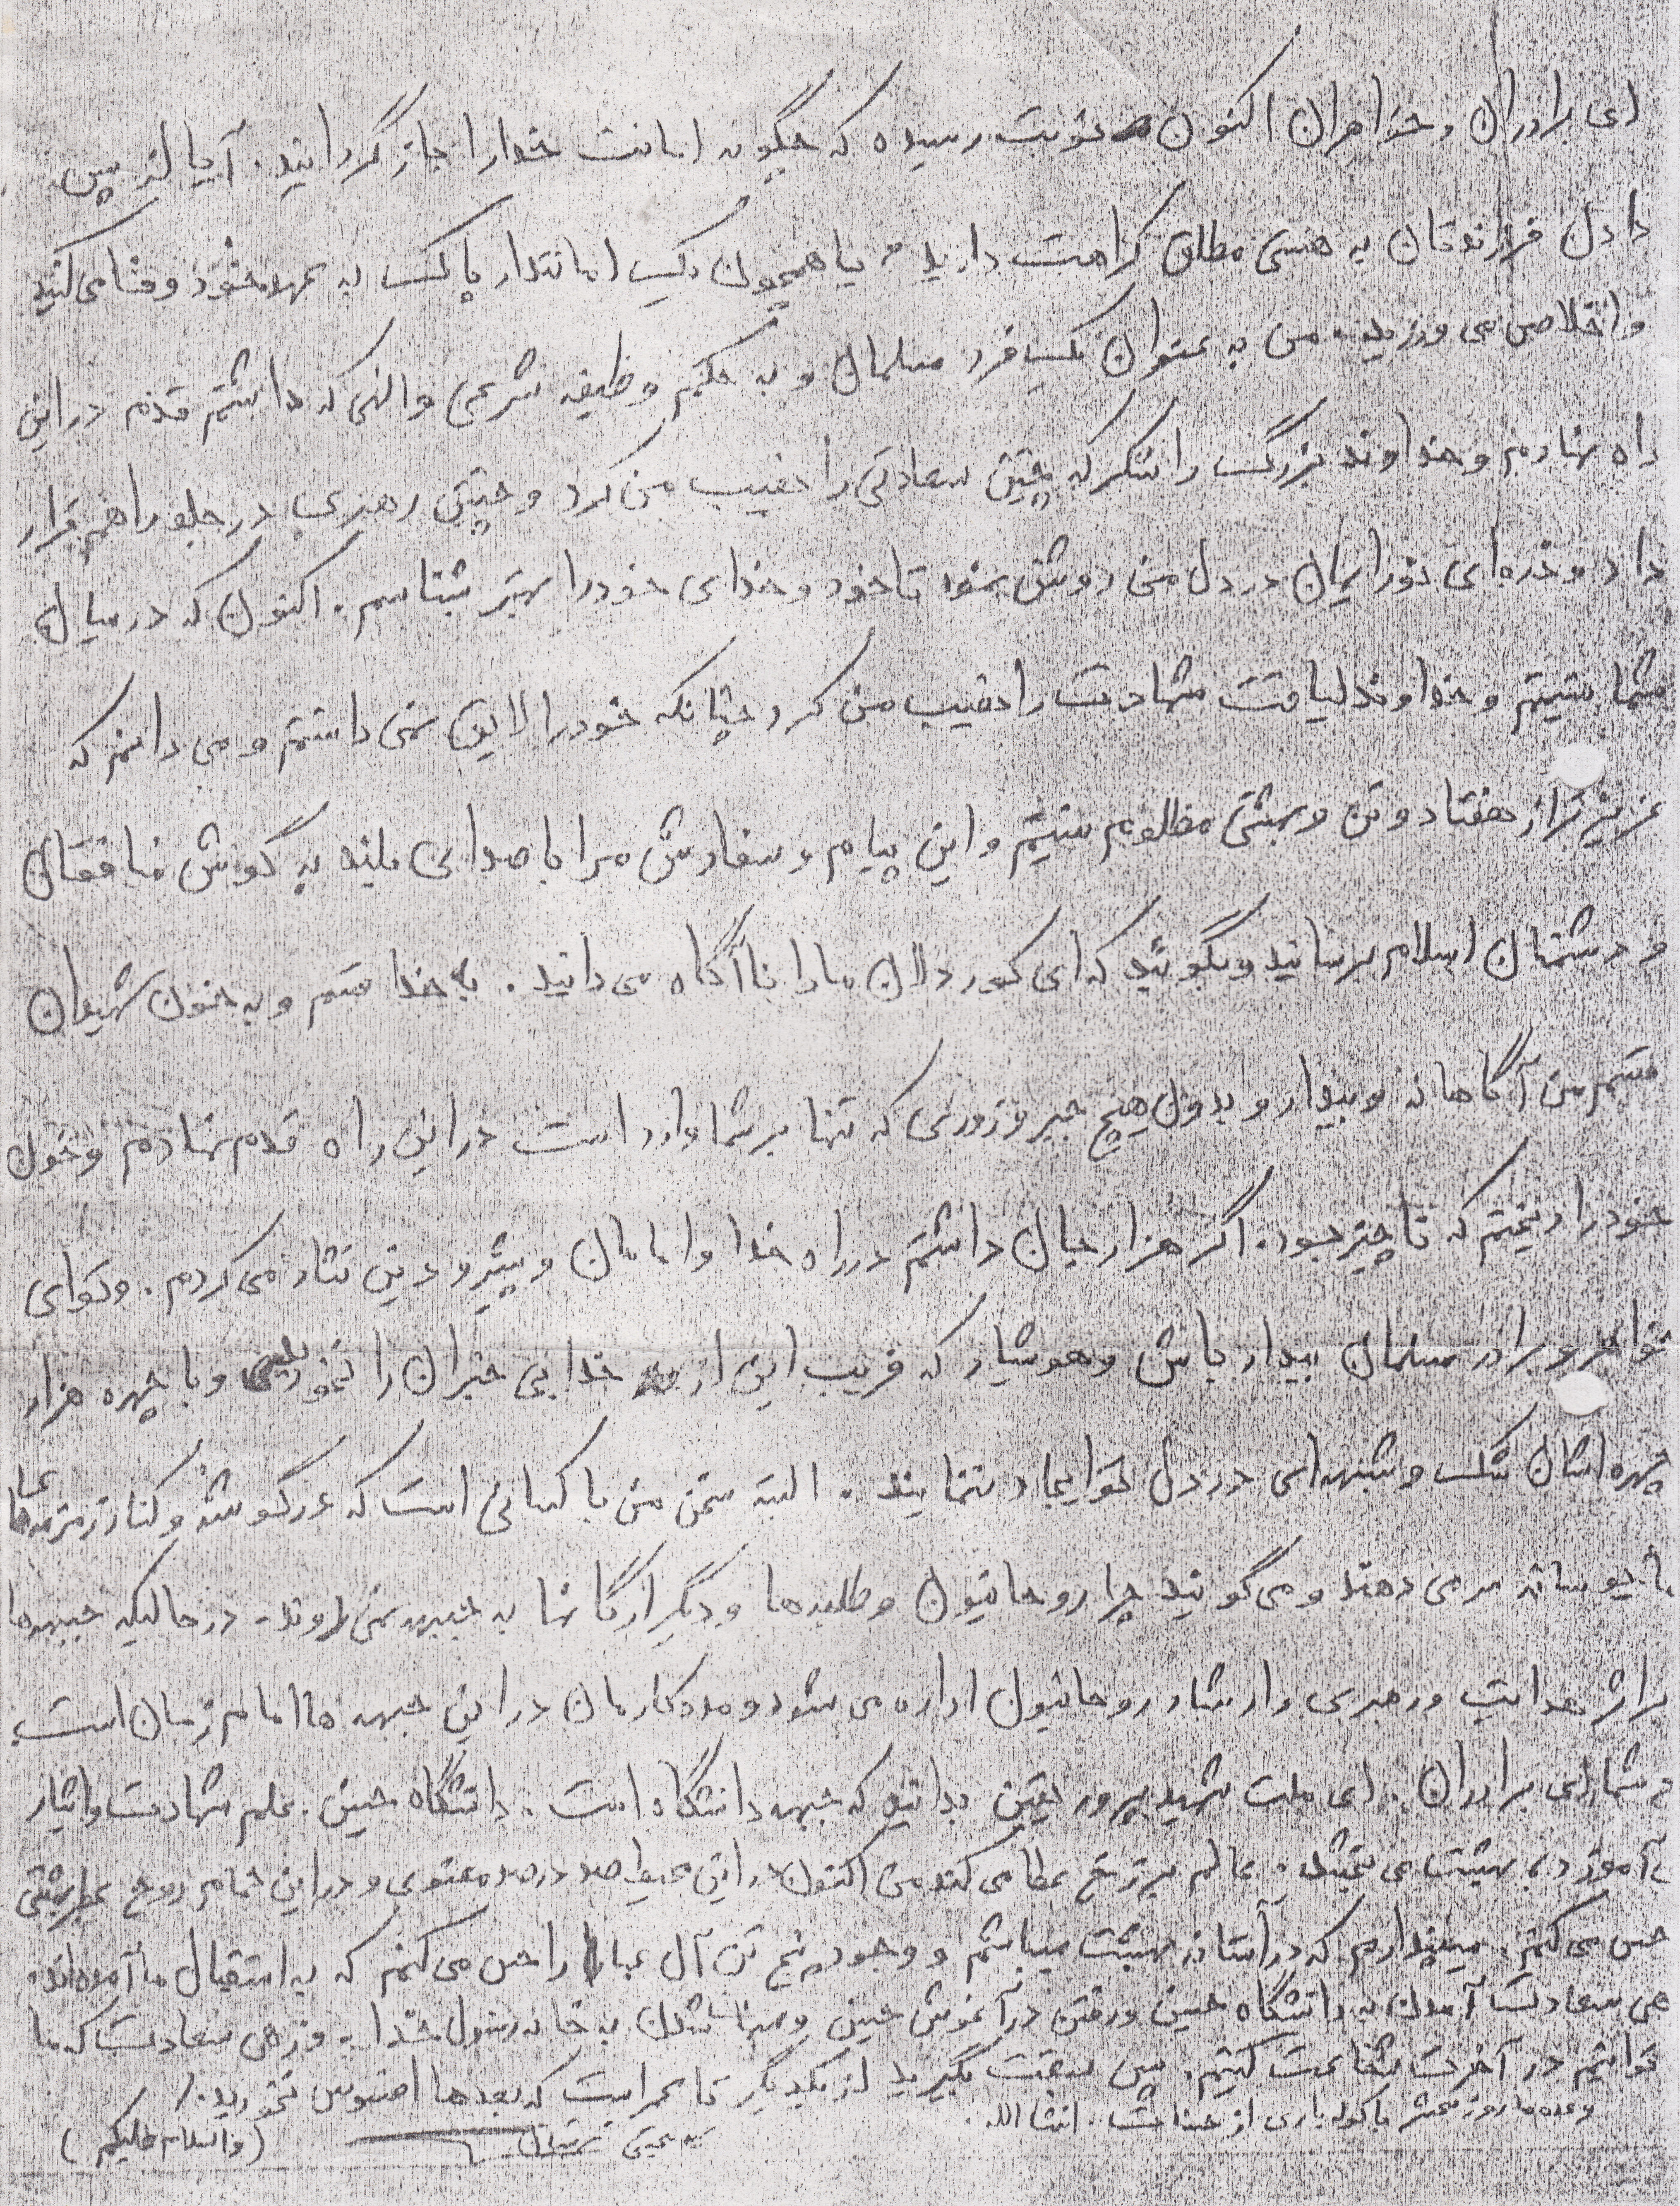 ای برادران و خواهران اکنون نوبت رسیده که چگونه امانت خدا را باز گردانید. آیا از پس
دادن فرزندتان به هستی مطلق کراهت دارید؟ یا همچون یک امانتدار پاک به عهد خود وفا می کنید
و اخلاص می ورزید. من به عنوان یک فرد مسلمان و به حکم وظیفه شرعی و الهی که داشتم قدم در این
راه نهادم و خداوند بزرگ را شکر که چنین سعادتی را نصیب من کرد و چنین رهبری در جلو راهم قرار
داد و ذره ای نور ایمان در دل من روشن نمود تا خود و خدای خود را بهتر شناسم. اکنون که در میان
شما نیستم و خداوند لیاقت شهادت را نصیب من کرد چنانکه خود را لایق نمی دانستم و می دانم که
عزیزتر از هفتاد و تن و بهشتی مظلوم نیستم و این پیام و سفارش مرا با صدای بلند به گوش منافقان
و دشمنان اسلام برسانید و بگوئید که ای کوردلان ما را ناآگاه می دانید. به خدا قسم و به خون شهیدان
قسم من آگاهانه و بیدار و بدون هیچ جبر و زوری که تنها بر شما وارد است در این راه قدم نهادم و خون
خود را ریختم که ناچیز بود. اگر هزار جان داشتم در راه خدا و امامان و پیشرو دین نثار می کردم. و تو ای
خواهر و برادر مسلمان بیدار باش و هوشیار که فریب این از خدا بی خبران را نخورید و با چهره هزار
چهره اشان شک و شبهه ای در دل تو ایجاد ننمایند. البته سخن من با کسانی است که در گوشه و کنار زمزمه های
مأیوسانه سر می دهند و می گویند چرا روحانیون و طلبه ها و دیگر ارگانها به جبهه نمی روند. در حالیکه جبهه ها
بر اثر هدایت و رهبری و ارشاد روحانیون اداره می شود و مددکارمان در این جبهه ها امام زمان است
و شما ای برادران. ای ملت شهید پرور یقین بدانید که جبهه دانشگاه است. دانشگاه حسین. علم شهادت و ایثار
می آموزد، بهشت می بخشد. عالم برزخ عطا می کند من اکنون در این محیط صد در صد معنوی و در این تمام روح
حس می کنم. میپندارم که در آستانه بهشت میباشم و وجود پنج تن آل عبا را حس می کنم که به استقبال ما آمده اند
زهی سعادت آمدن به دانشگاه حسین و رفتن در آغوش حسین و میهمان شدن به خانه رسول خدا. و زهی سعادت که ما
توانیم در آخرت شفاعت کنیم. پس سبقت بگیرید از یکدیگر تا عمر است که بعدها افسوس نخورید./
وعده ما روز محشر با کوله باری از حسنات. انشاالله.
(والسلام علیکم)